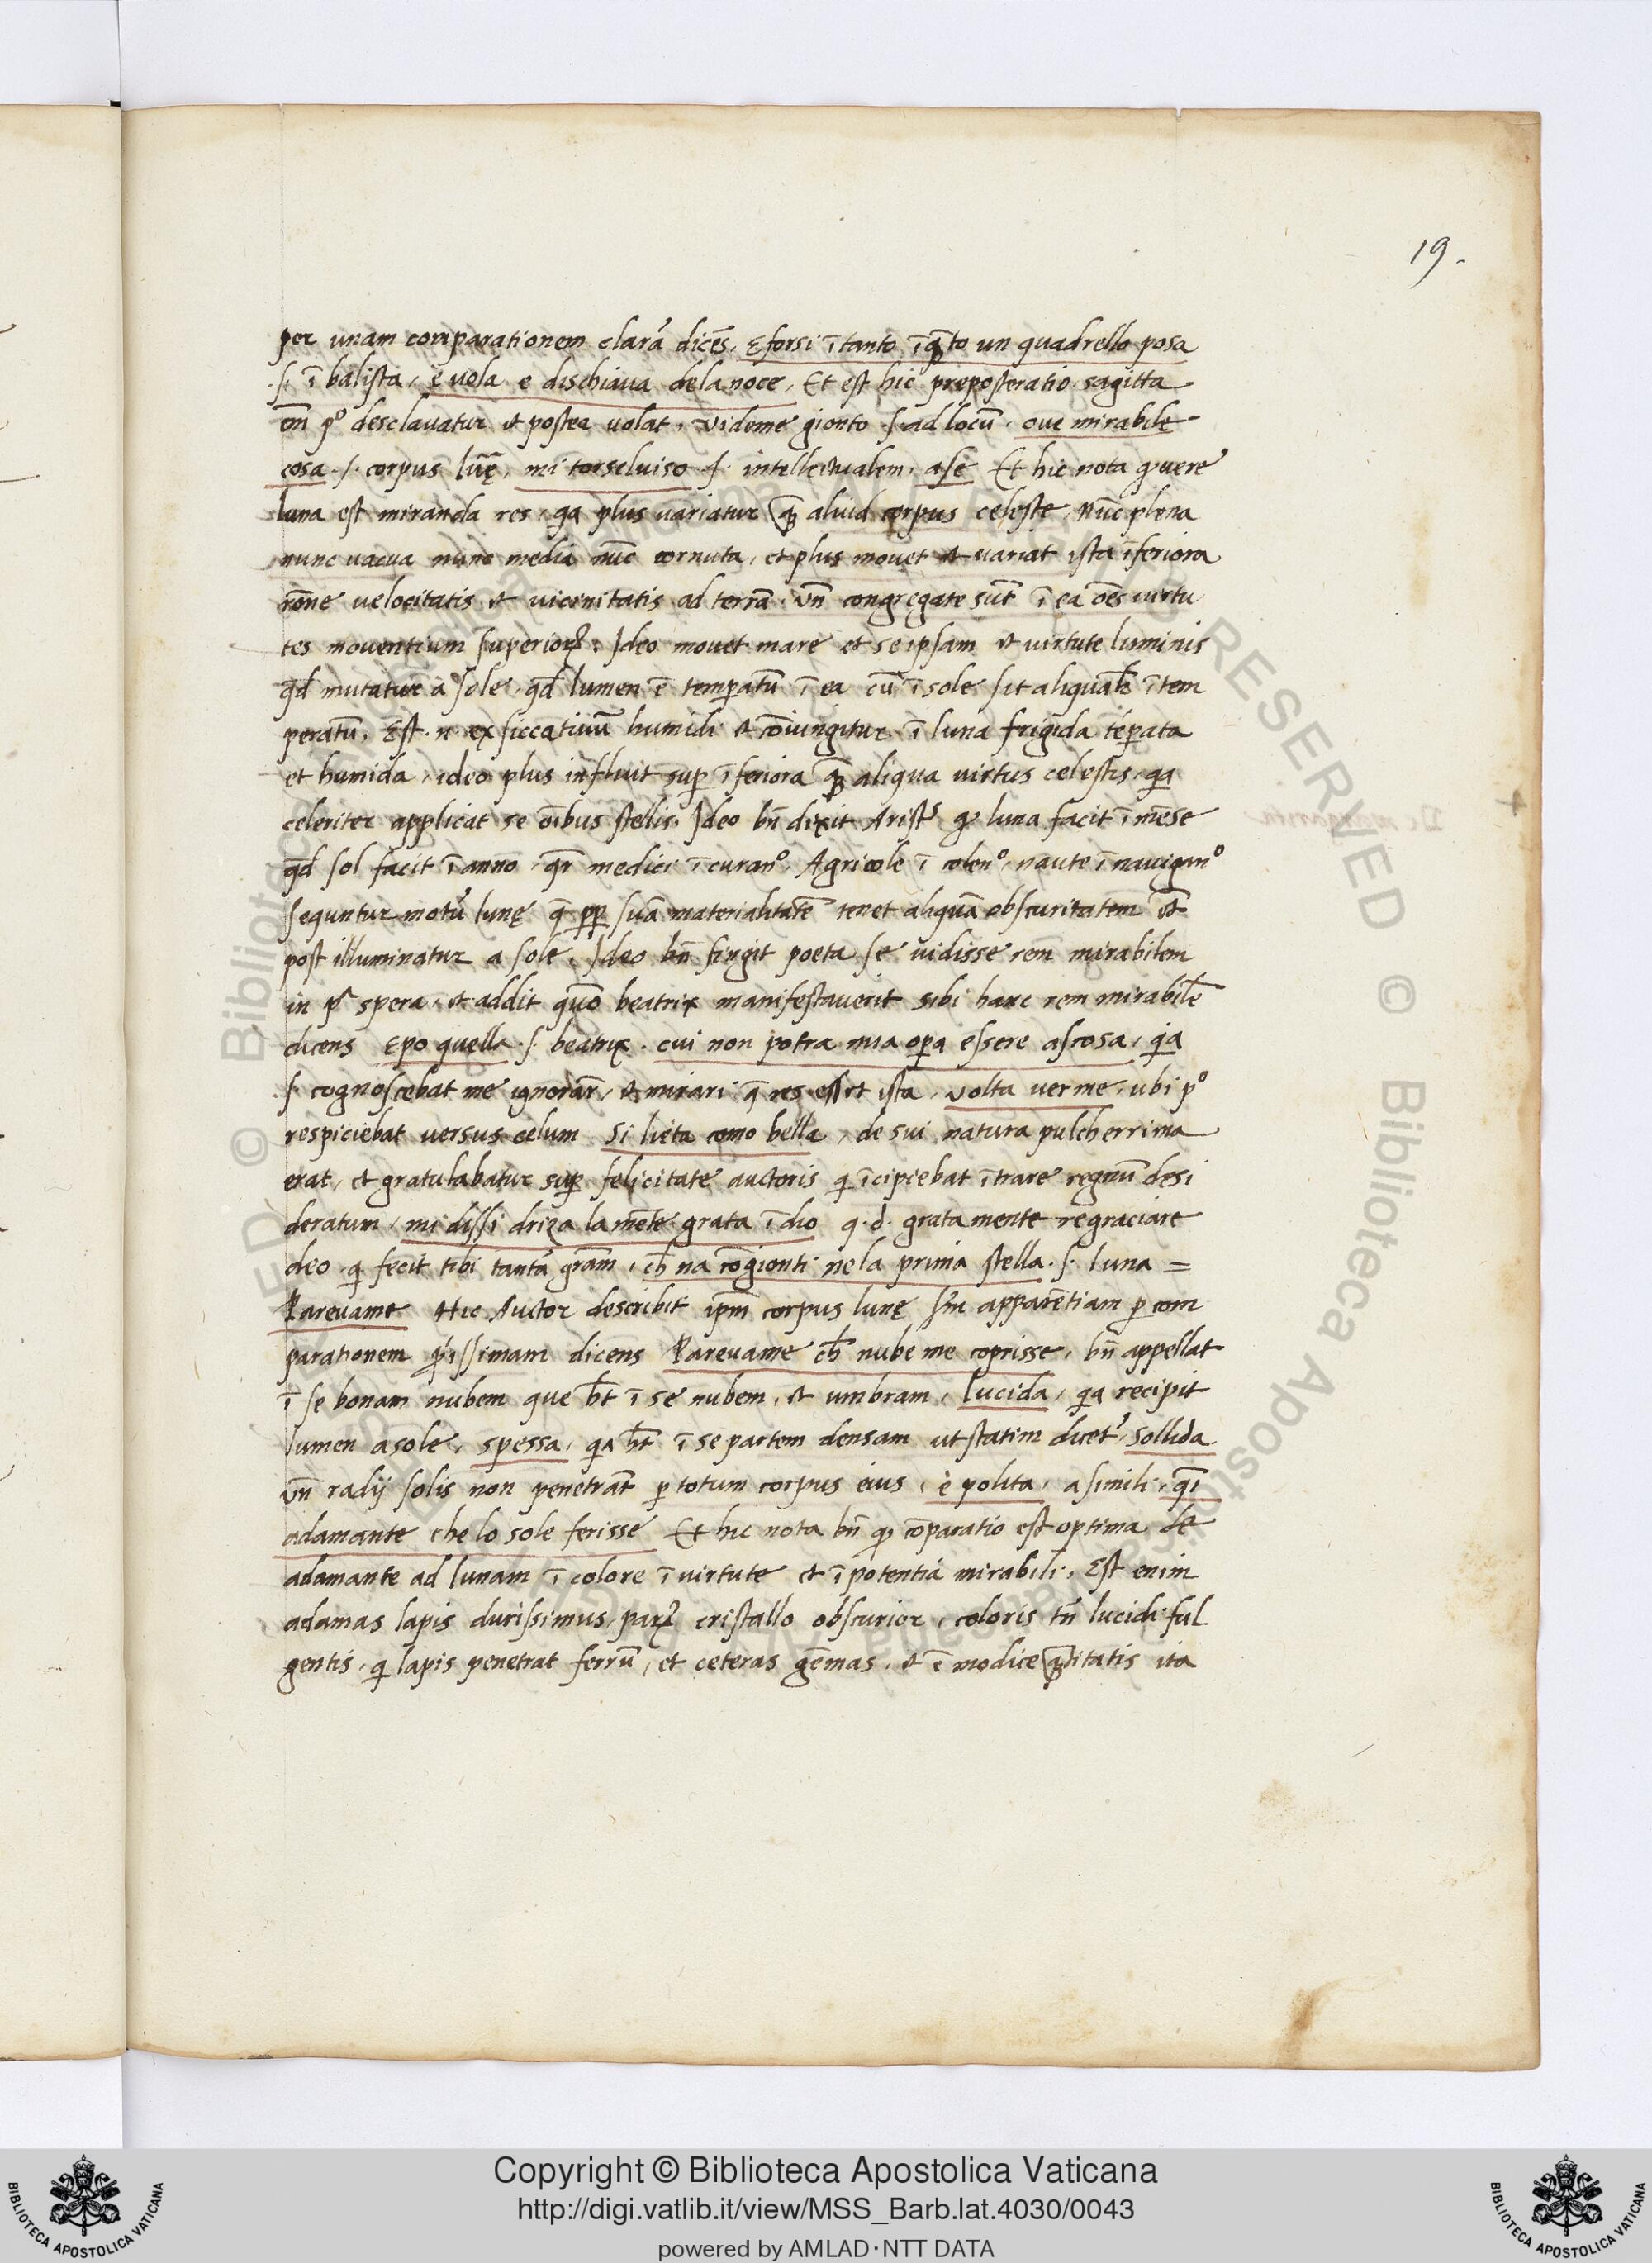 19.
per unam comparationem clarā dicēs. Eforsi ī tanto ī q̄to un quadrello posa
.s. ī balista, e vola e dischiava dela noce, Et est hic preposteratio sagitta
em̄ pº desclavatur et postea volat. Videme gionto .s. ad locū, ove mirabile
cosa .s. corpus lūę, mi torselviso .s. intellectualem, ase Et hic nota qᷓ vere
luna est miranda res, qa plus variatur q̄ aliud corpus celeste, Nūc plena
nunc vacua nunc media nūc cornuta, et plus movet et variat ista īferiora
rōne velocitatis et vicinitatis ad terrā, Vn̄ congregate sūt ī ea ōes virtu
tes moventium superioꝝ. Ideo movet mare et se ipsam et virtute luminis
qd̄ mutatur a sole, qd̄ lumen ē temperatū ī ea cū ī sole sit aliqual̄r ītem
peratū. Est .n. exsiccativū humidi et cōiungitur ī luna frigida tēperata
et humida, ideo plus influit sup̄ īferiora q̄ aliqua virtus celestis, qa
celeriter applicat se oībus stellis. Ideo bn̄ dixit Arist. qᷓ luna facit ī mēse
qd̄ sol facit ī anno, qr̄ medici ī curanº, Agricole ī colenº, naute ī naviganº
sequntur motū lunę q̄ pp̄ suā materialitatē tenet aliquā obscuritatem et
post illuminatur a sole. Ideo bn̄ fingit poeta se vidisse rem mirabilem
in pª spera, et addit quō beatrix manifestaverit sibi hanc rem mirabilē
dicens Epo quella .s. beatrix. cui non potra mia opa essere ascosa, qa
.s. cognoscebat me ignorār, et mirari q̄ res esset ista, volta ver me, ubi pº
respiciebat versus celum Si lieta como bella, de sui natura pulcherrima
erat, et gratulabatur sup̄ felicitate auctoris qi īcipiebat ītrare regnū desi
deratum, mi dissi driza la mēte grata ī dio q.d. grata mente regraciare
deo qi fecit tibi tantā grām, ch̄ na cōgionti nela prima stella .s. luna =
Parevame Hic Auctor describit ipm̄ corpus lunę scd̄m apparentiam p com
parationem pᵖissimam dicens Parevame ch̄ nube me coprisse, bn̄ appellat
ī se bonam nubem que h̄t ī se nubem, et umbram, lucida, qa recipit
lumen a sole, spessa, qa h̄t ī se partem densam ut statim dicet, sollida
Vn̄ radij solis non penetrāt p totum corpus eius, e polita, a simili, q̄i
adamante che lo sole ferisse Et hic nota bn̄ qᷓ cōparatio est optima de
adamante ad lunam ī colore ī virtute et ī potentia mirabili. Est enim
adamas lapis durissimus, paꝝ cristallo obscurior, coloris tn̄ lucidi ful
gentis, qi lapis penetrat ferrū, et ceteras gēmas, et ē modice q̄titatis ita
Copyright © Biblioteca Apostolica Vaticana
http://digi.vatlib.it/view/MSS_Barb.lat.4030/0043
powered by AMLAD·NTT DATA
BIBLIOTECA APOSTOLICA VATICANA
BIBLIOTECA APOSTOLICA VATICANA